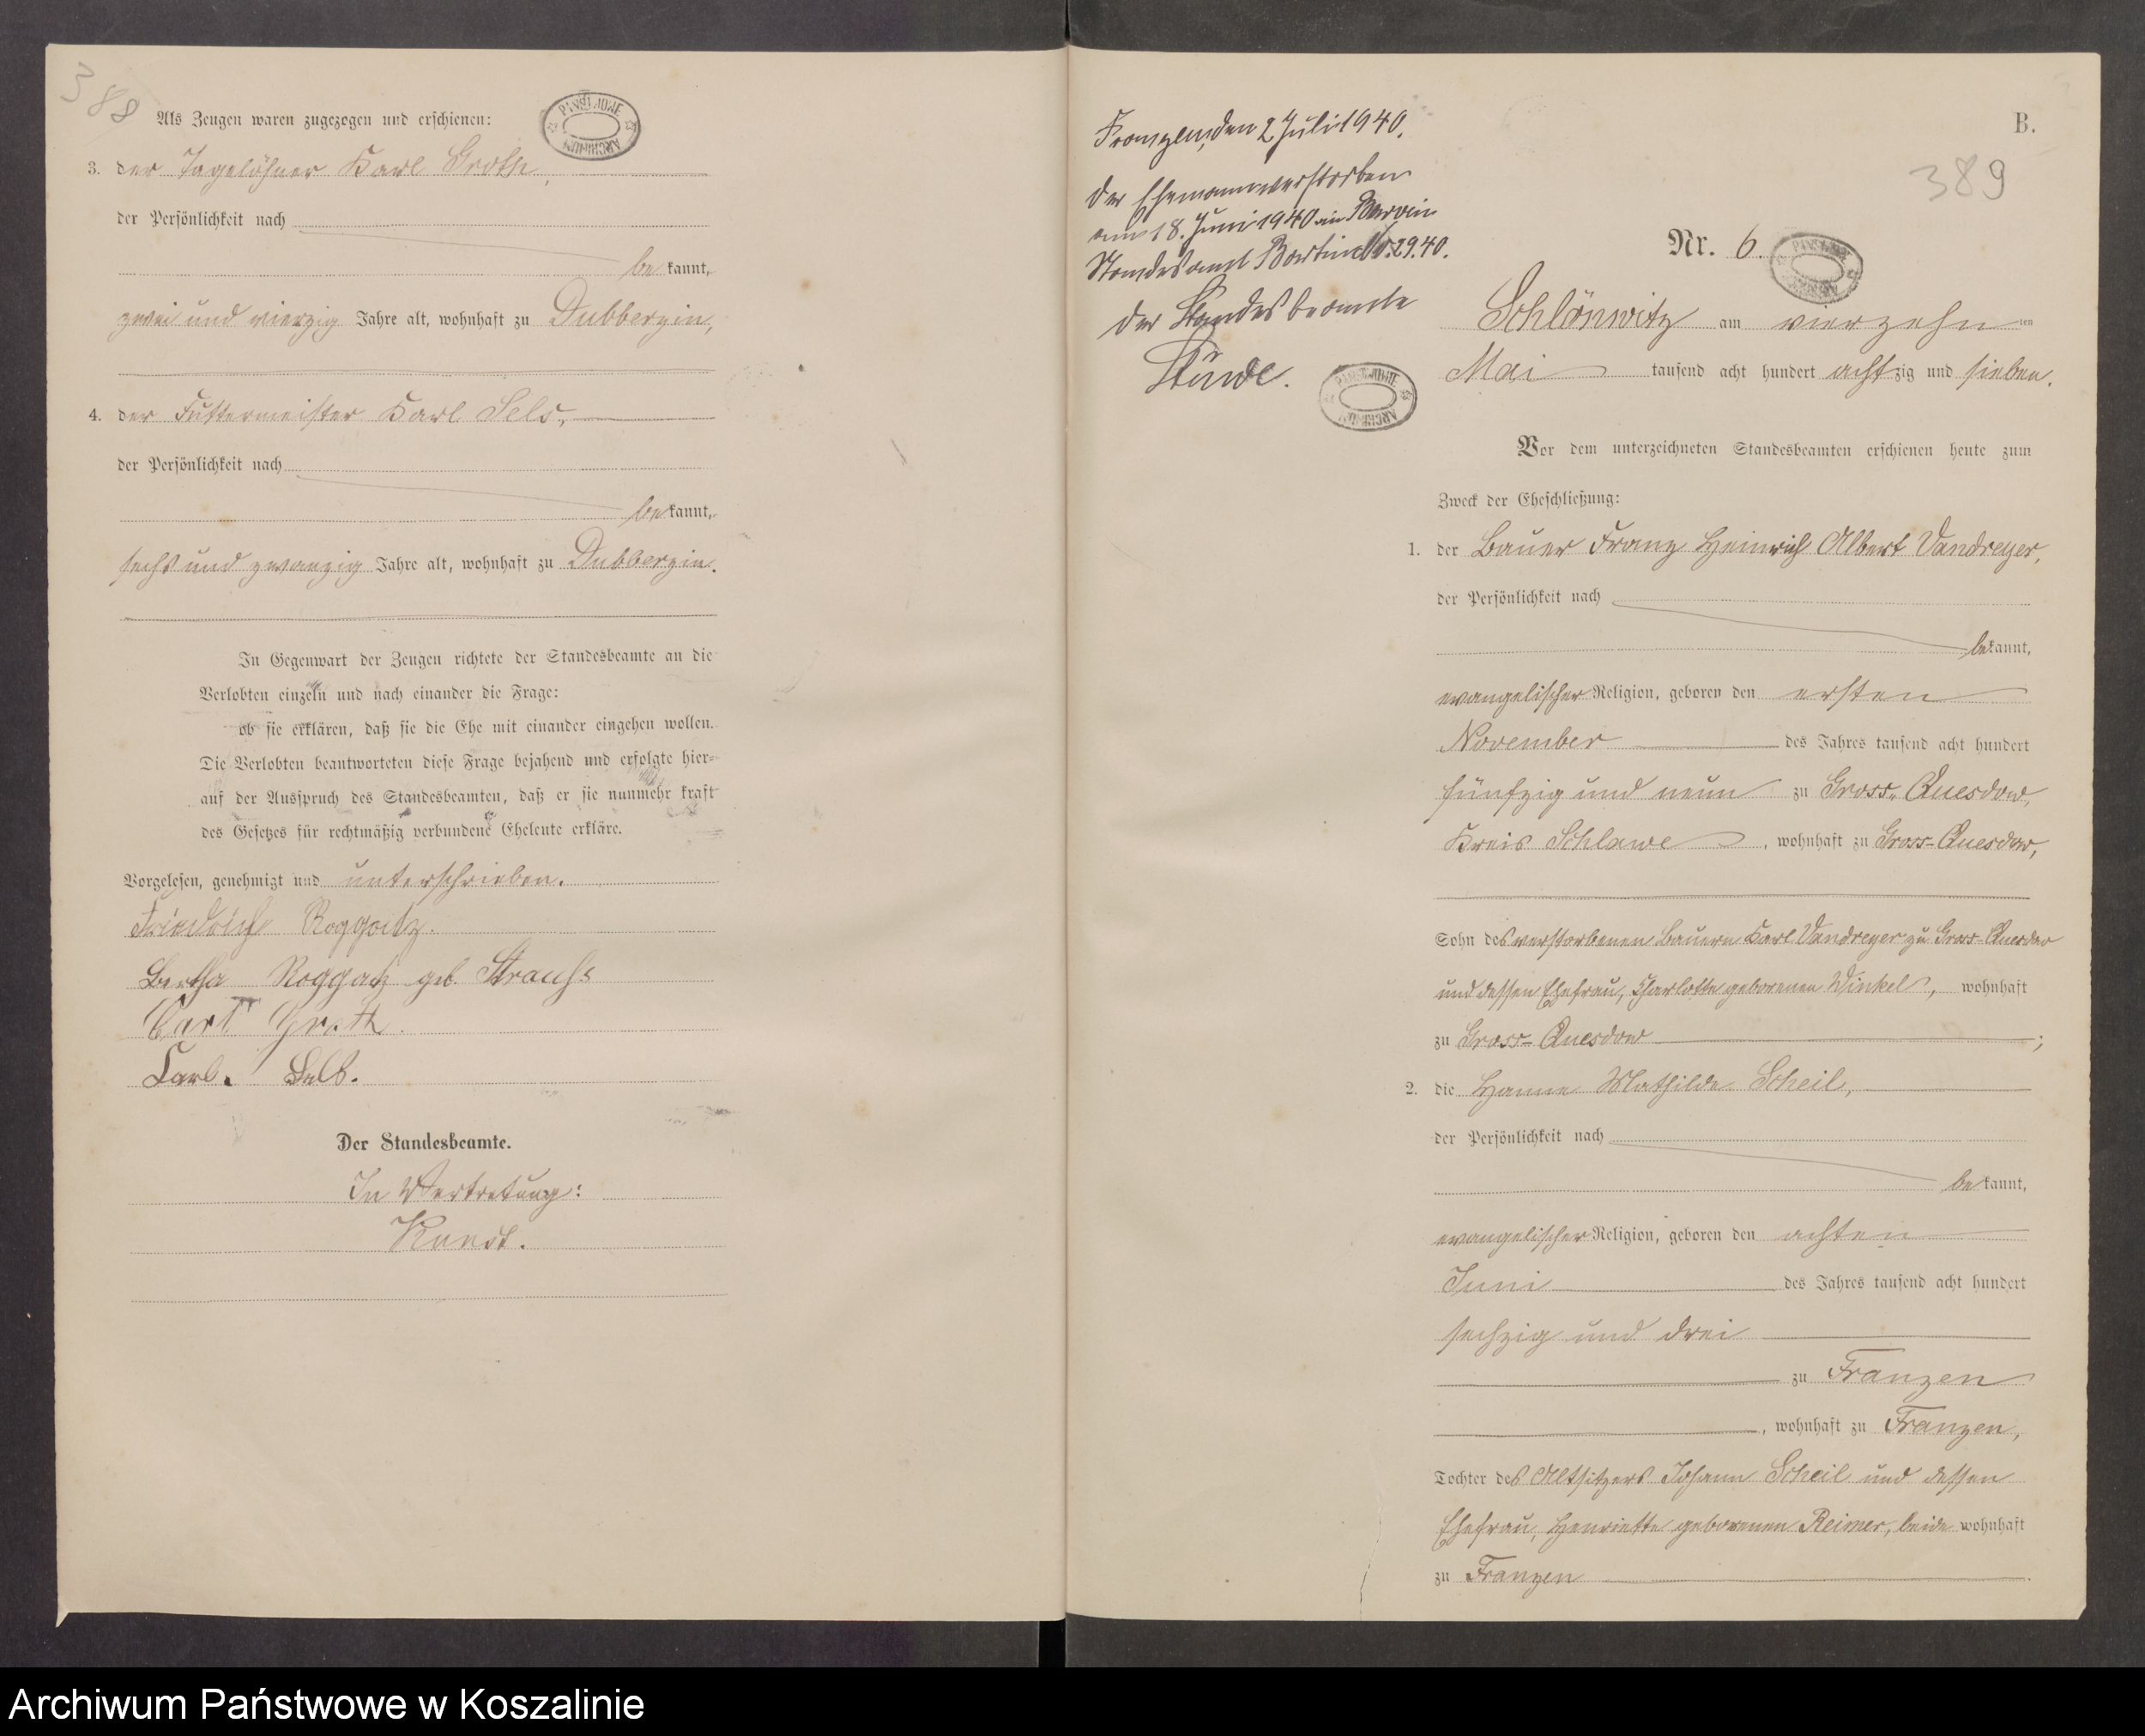 388
Als Zeugen waren zugezogen und erschienen:
3. der Tagelöhner Karl Groth,
der Persönlichkeit nach
bekannt,
zwei und vierzig Jahre alt, wohnhaft zu Dubberzin,
4. der Futtermeister Karl Selb,
der Persönlichkeit nach
bekannt,
sechs und zwanzig Jahre alt, wohnhaft zu Dubberzin.
In Gegenwart der Zeugen richtete der Standesbeamte an die
Verlobten einzeln und nach einander die Frage:
ob sie erklären, daß sie die Ehe mit einander eingehen wollen.
Die Verlobten beantworteten diese Frage bejahend und erfolgte hier-
auf der Ausspruch des Standesbeamten, daß er sie nunmehr kraft
des Gesetzes für rechtmäßig verbundene Eheleute erkläre.
Vorgelesen, genehmigt und unterschrieben.
Friedrich Roggatz.
Bertha Roggatz geb. Strauss
Carl Groth.
Karl. Selb.
Der Standesbeamte.
In Vertretung:
B.
389
Franzen, den 2 Juli 1940.
Der Ehemann verstorben
am 18. Juni 1940 in
Standesamt Nr. 29.40.
Der Standesbeamte
Nr. 6.
Schlönwitz am vierzehnten
Mai tausend acht hundert achtzig und sieben.
Vor dem unterzeichneten Standesbeamten erschienen heute zum
Zweck der Eheschließung:
1. der Bauer Franz Heinrich Albert Vandreyer,
der Persönlichkeit nach
bekannt,
evangelischer Religion, geboren den ersten
November des Jahres tausend acht hundert
fünfzig und neun zu Gross-Quesdow,
Kreis Schlawe, wohnhaft zu Gross-Quesdow,
Sohn des verstorbenen Bauern Karl Vandreyer zu Gross-Quesdow
und dessen Ehefrau, Charlotte geborenen Winkel, wohnhaft
zu Gross-Quesdow;
2. die Hanne Mathilde Scheil,
der Persönlichkeit nach
bekannt,
evangelischer Religion, geboren den achten
Juni des Jahres tausend acht hundert
sechzig und drei
zu Franzen
, wohnhaft zu Franzen,
Tochter des Altsitzers Johann Scheil und dessen
Ehefrau, Henriette geborenen Reimer, beide wohnhaft
zu Franzen.
Archiwum Państwowe w Koszalinie